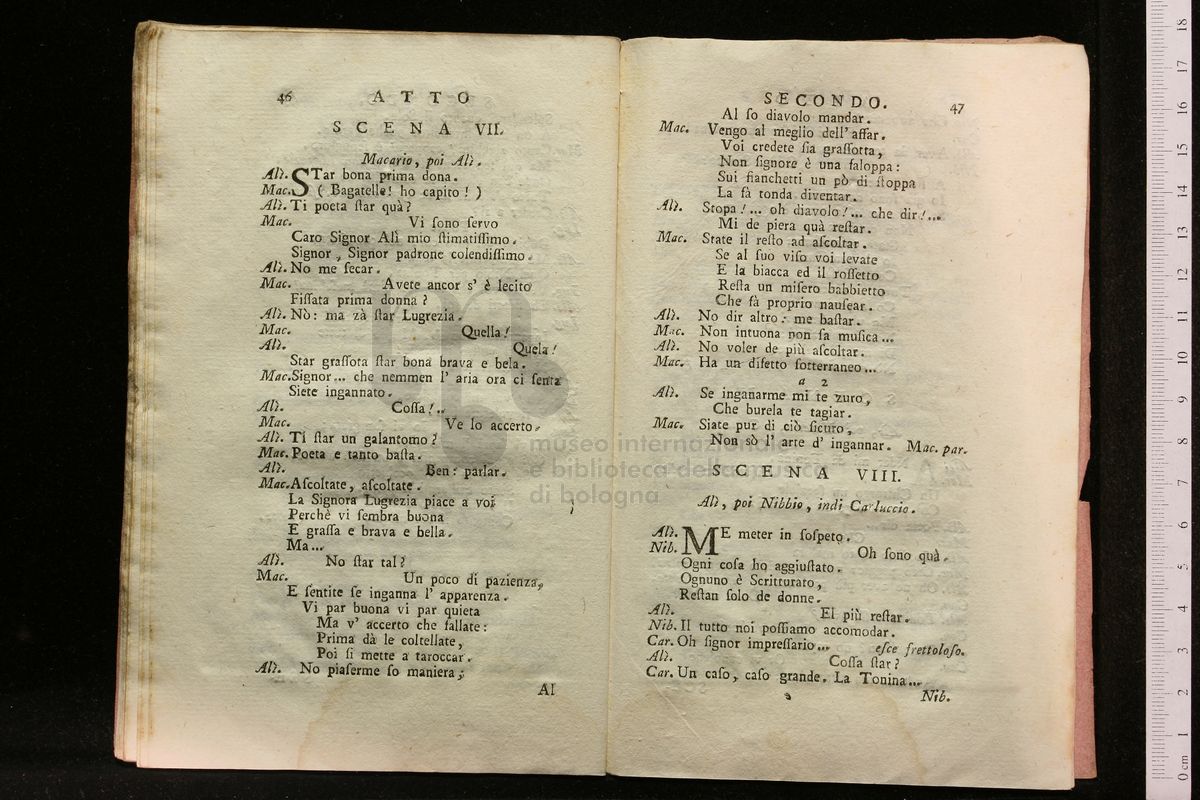 46 ATTO
SCENA VII.
Macario, poi Alì.
Alì. STar bona prima dona.
Mac. ( Bagatelle! ho capito! )
Alì. Ti poeta ſtar quà?
Mac. Vi ſono ſervo
Caro Signor Alì mio ſtimatiſſimo.
Signor, Signor padrone colendiſſimo.
Alì. No me ſecar.
Mac. Avete ancor s' è lecito
Fiſſata prima donna?
Alì. Nò: ma zà ſtar Lugrezia.
Mac. Quella!
Alì. Quela!
Star graſſota ſtar bona brava e bela.
Mac. Signor... che nemmen l' aria ora ci ſenta
Siete ingannato.
Alì. Coſſa!...
Mac. Ve lo accerto.
Alì. Ti ſtar un galantomo?
Mac. Poeta e tanto baſta.
Alì. Ben: parlar.
Mac. Aſcoltate, aſcoltate.
La Signora Lugrezia piace a voi
Perchè vi ſembra buona
E graſſa e brava e bella.
Ma...
Alì. No ſtar tal?
Mac. Un poco di pazienza,
E ſentite ſe inganna l' apparenza.
Vi par buona vi par quieta
Ma v' accerto che fallate:
Prima dà le coltellate,
Poi ſi mette a taroccar.
Alì. No piaſerme ſo maniera;
Al
SECONDO. 47
Al ſo diavolo mandar.
Mac. Vengo al meglio dell' affar.
Voi credete ſia graſſotta,
Non ſignore è una faloppa:
Sui fianchetti un pò di ſtoppa
La fà tonda diventar.
Alì. Stopa!... oh diavolo!... che dir!...
Mi de piera quà reſtar.
Mac. State il reſto ad aſcoltar.
Se al ſuo viſo voi levate
E la biacca ed il roſſetto
Reſta un miſero babbietto
Che fà proprio nauſear.
Alì. No dir altro: me baſtar.
Mac. Non intuona non ſa muſica...
Alì. No voler de più aſcoltar.
Mac. Ha un difetto ſotterraneo...
a 2
Alì. Se inganarme mi te zuro,
Che burela te tagiar.
Mac. Siate pur di ciò ſicuro,
Non sò l' arte d' ingannar. Mac. par.
SCENA VIII.
Alì, poi Nibbio, indi Carluccio.
Alì. ME meter in ſoſpeto.
Nib. Oh ſono quà.
Ogni coſa ho aggiuſtato.
Ognuno è Scritturato,
Reſtan ſolo de donne.
Alì. El più reſtar.
Nib. Il tutto noi poſſiamo accomodar.
Car. Oh ſignor impreſſario... eſce frettoloſo.
Alì. Coſſa ſtar?
Car. Un caſo, caſo grande. La Tonina...
Nib.
museo internazionale
e biblioteca della musica
di bologna
0 cm 1 2 3 4 5 6 7 8 9 10 11 12 13 14 15 16 17 18